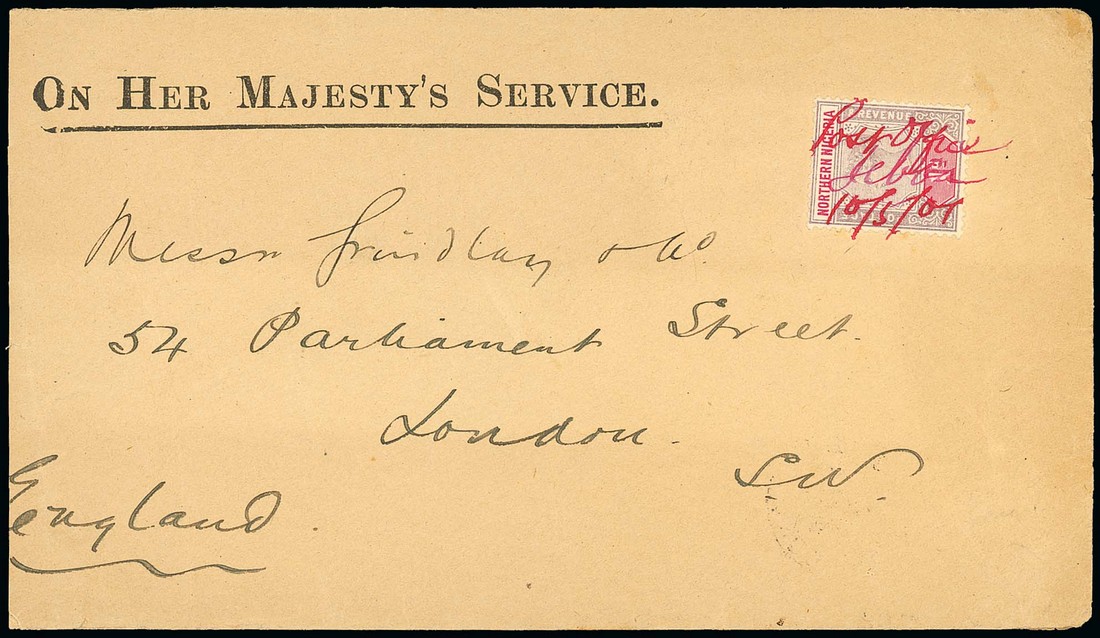 On Her Majesty's Service.
REVENUE
NORTHERN NIGERIA
Post Office
Jebba
10/5/01
Messrs Grindlay & Co.
54 Parliament Street.
London.
S.W.
England.